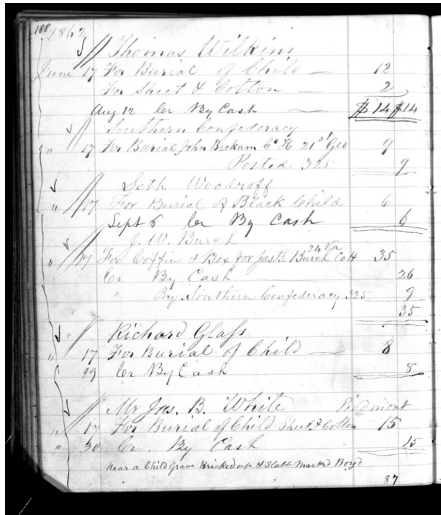 188 1862
Thomas Wilkins
June 17 For Burial of Child 12
For Sheet & Cotton 2
Aug 12 Cr By Cash $14 $14
Southern Confederacy
" 17 For Burial John Beckam Co H 21st Geo 9
Posted 325 9
Seth Woodroff
" 17 For Burial of Black Child 6
Sept 6 Cr By Cash 6
J. W. Burch
" 17 For Coffin & Box for Jas B. Burch Co H 24 Va 35
Cr By Cash 26
" By Southern Confederacy 325 9
35
Richard Glass
" 17 For Burial of Child 8
" 29 Cr By Cash 8
Mr Jas. B. White Piedmont
" 17 For Burial of Child Sheet & Cotton 15
" 30 Cr. By Cash 15
Near a Child Grave Bricked up & Slabb Marked Boyd
87